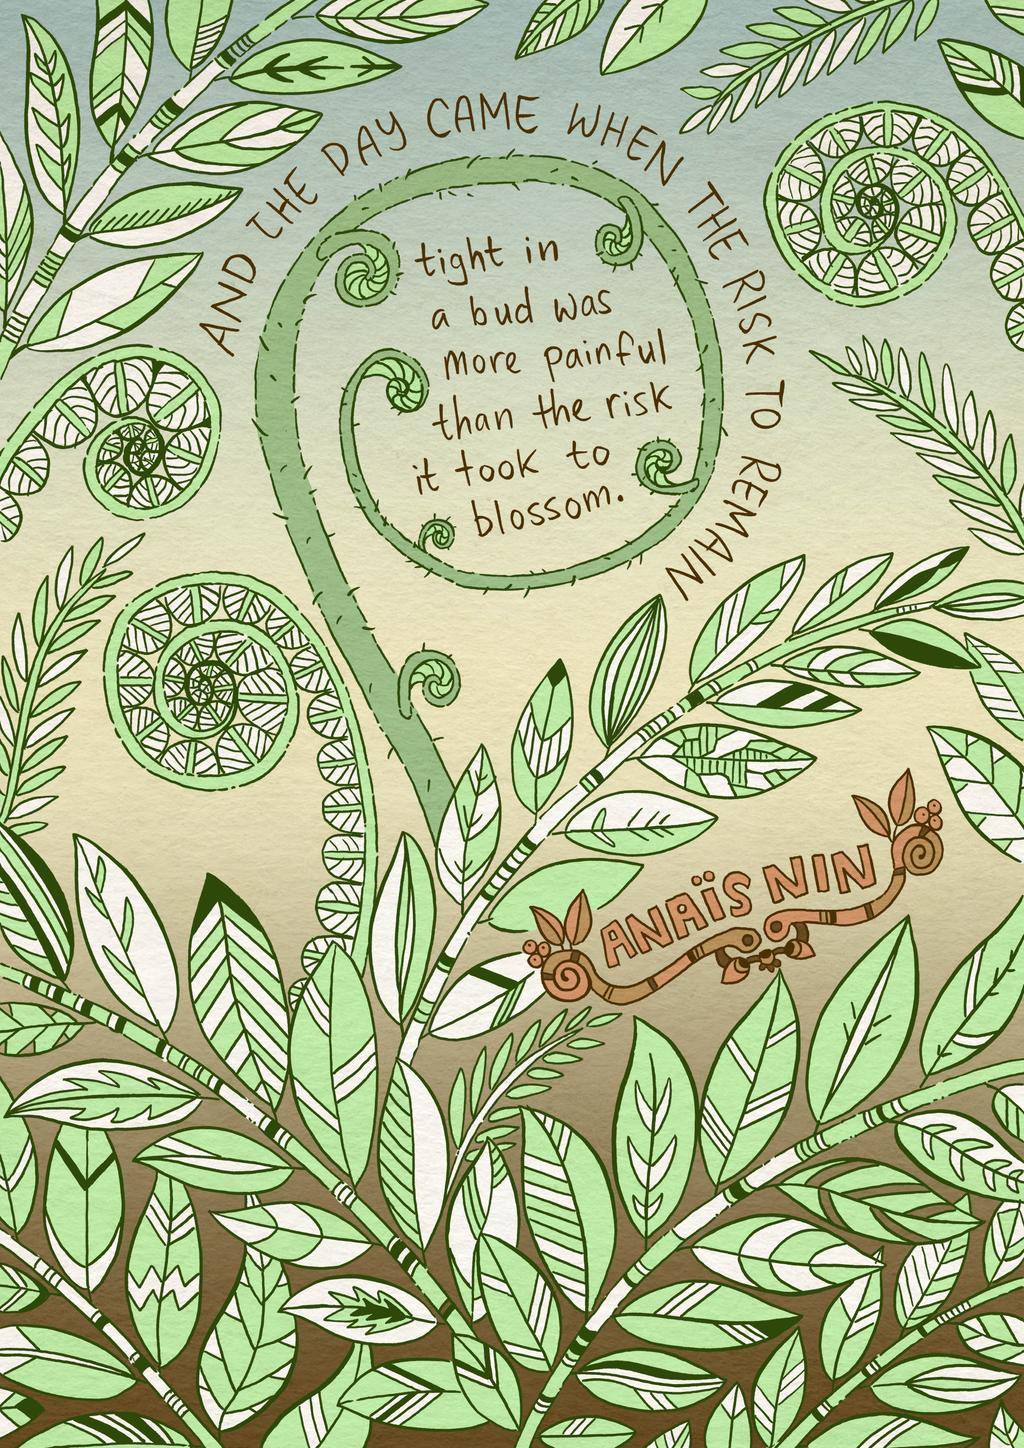 AND THE DAY CAME WHEN THE RISK TO REMAIN
tight in
a bud was
more painful
than the risk
it took to
blossom.
ANAÏS NIN